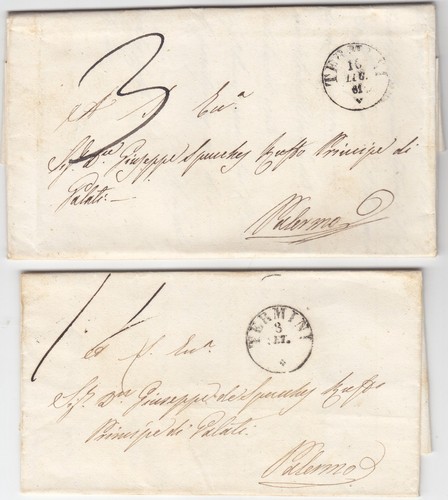 3
TERMINI
16
LUG.
61
A S. Ecc.a
Sig. D.n Giuseppe Spuches Ruffo Principe di
Galati
Palermo
TERMINI
3
SET.
A S. Ecc.a
Sig. D.n Giuseppe de Spuches Ruffo
Principe di Galati
Palermo